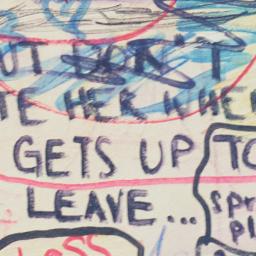 UT DON'T
TE HER WHE
GETS UP TO
LEAVE...
spr
pl
LESS